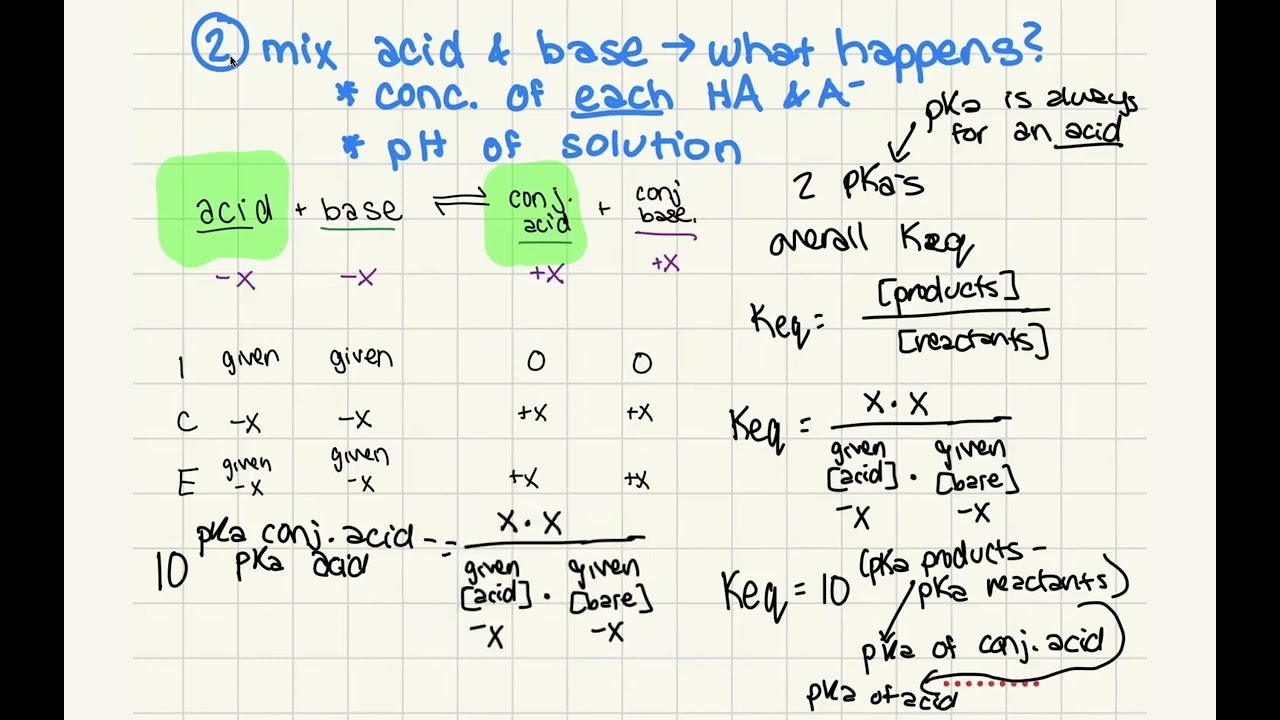 ② mix acid & base → what happens?
* conc. of each HA & A⁻
* pH of solution
pKa is always
for an acid
2 pKa's
overall Keq
Keq = [products]
[reactants]
acid + base ⇌ conj. acid + conj base.
-x -x +x +x
I given given 0 0
C -x -x +x +x
E given -x given -x +x +x
Keq = x · x
given given
[acid] · [base]
-x -x
10 pKa conj. acid - pKa acid = x · x
given given
[acid] · [base]
-x -x
Keq = 10 (pKa products -
pKa reactants)
pKa of conj. acid
pKa of acid